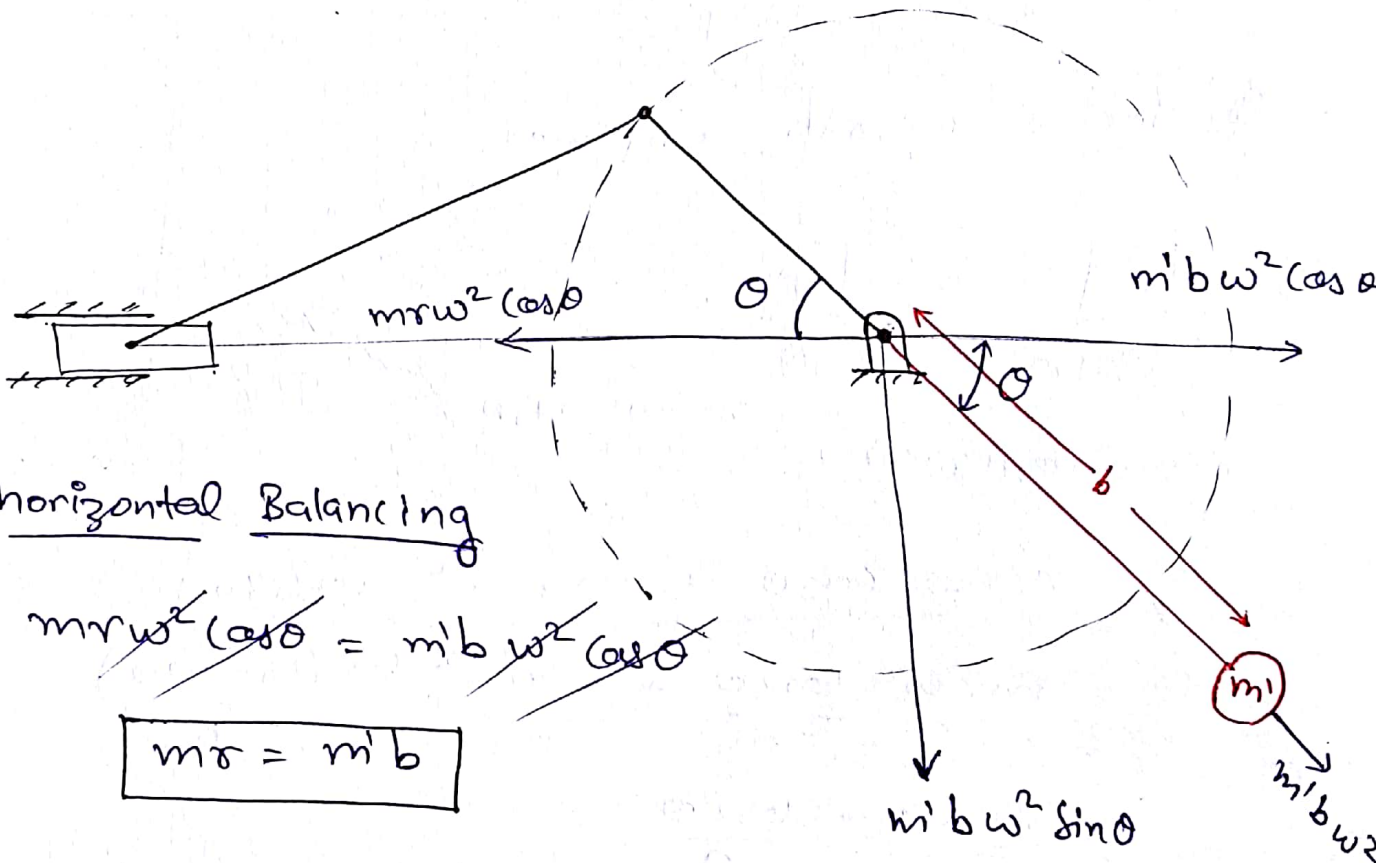 m'bω² cosθ
mrω² cosθ
θ
θ
b
horizontal Balancing
mrω² cosθ = m'b ω² cosθ
mr = m'b
m'
m'bω²
m'bω² sinθ